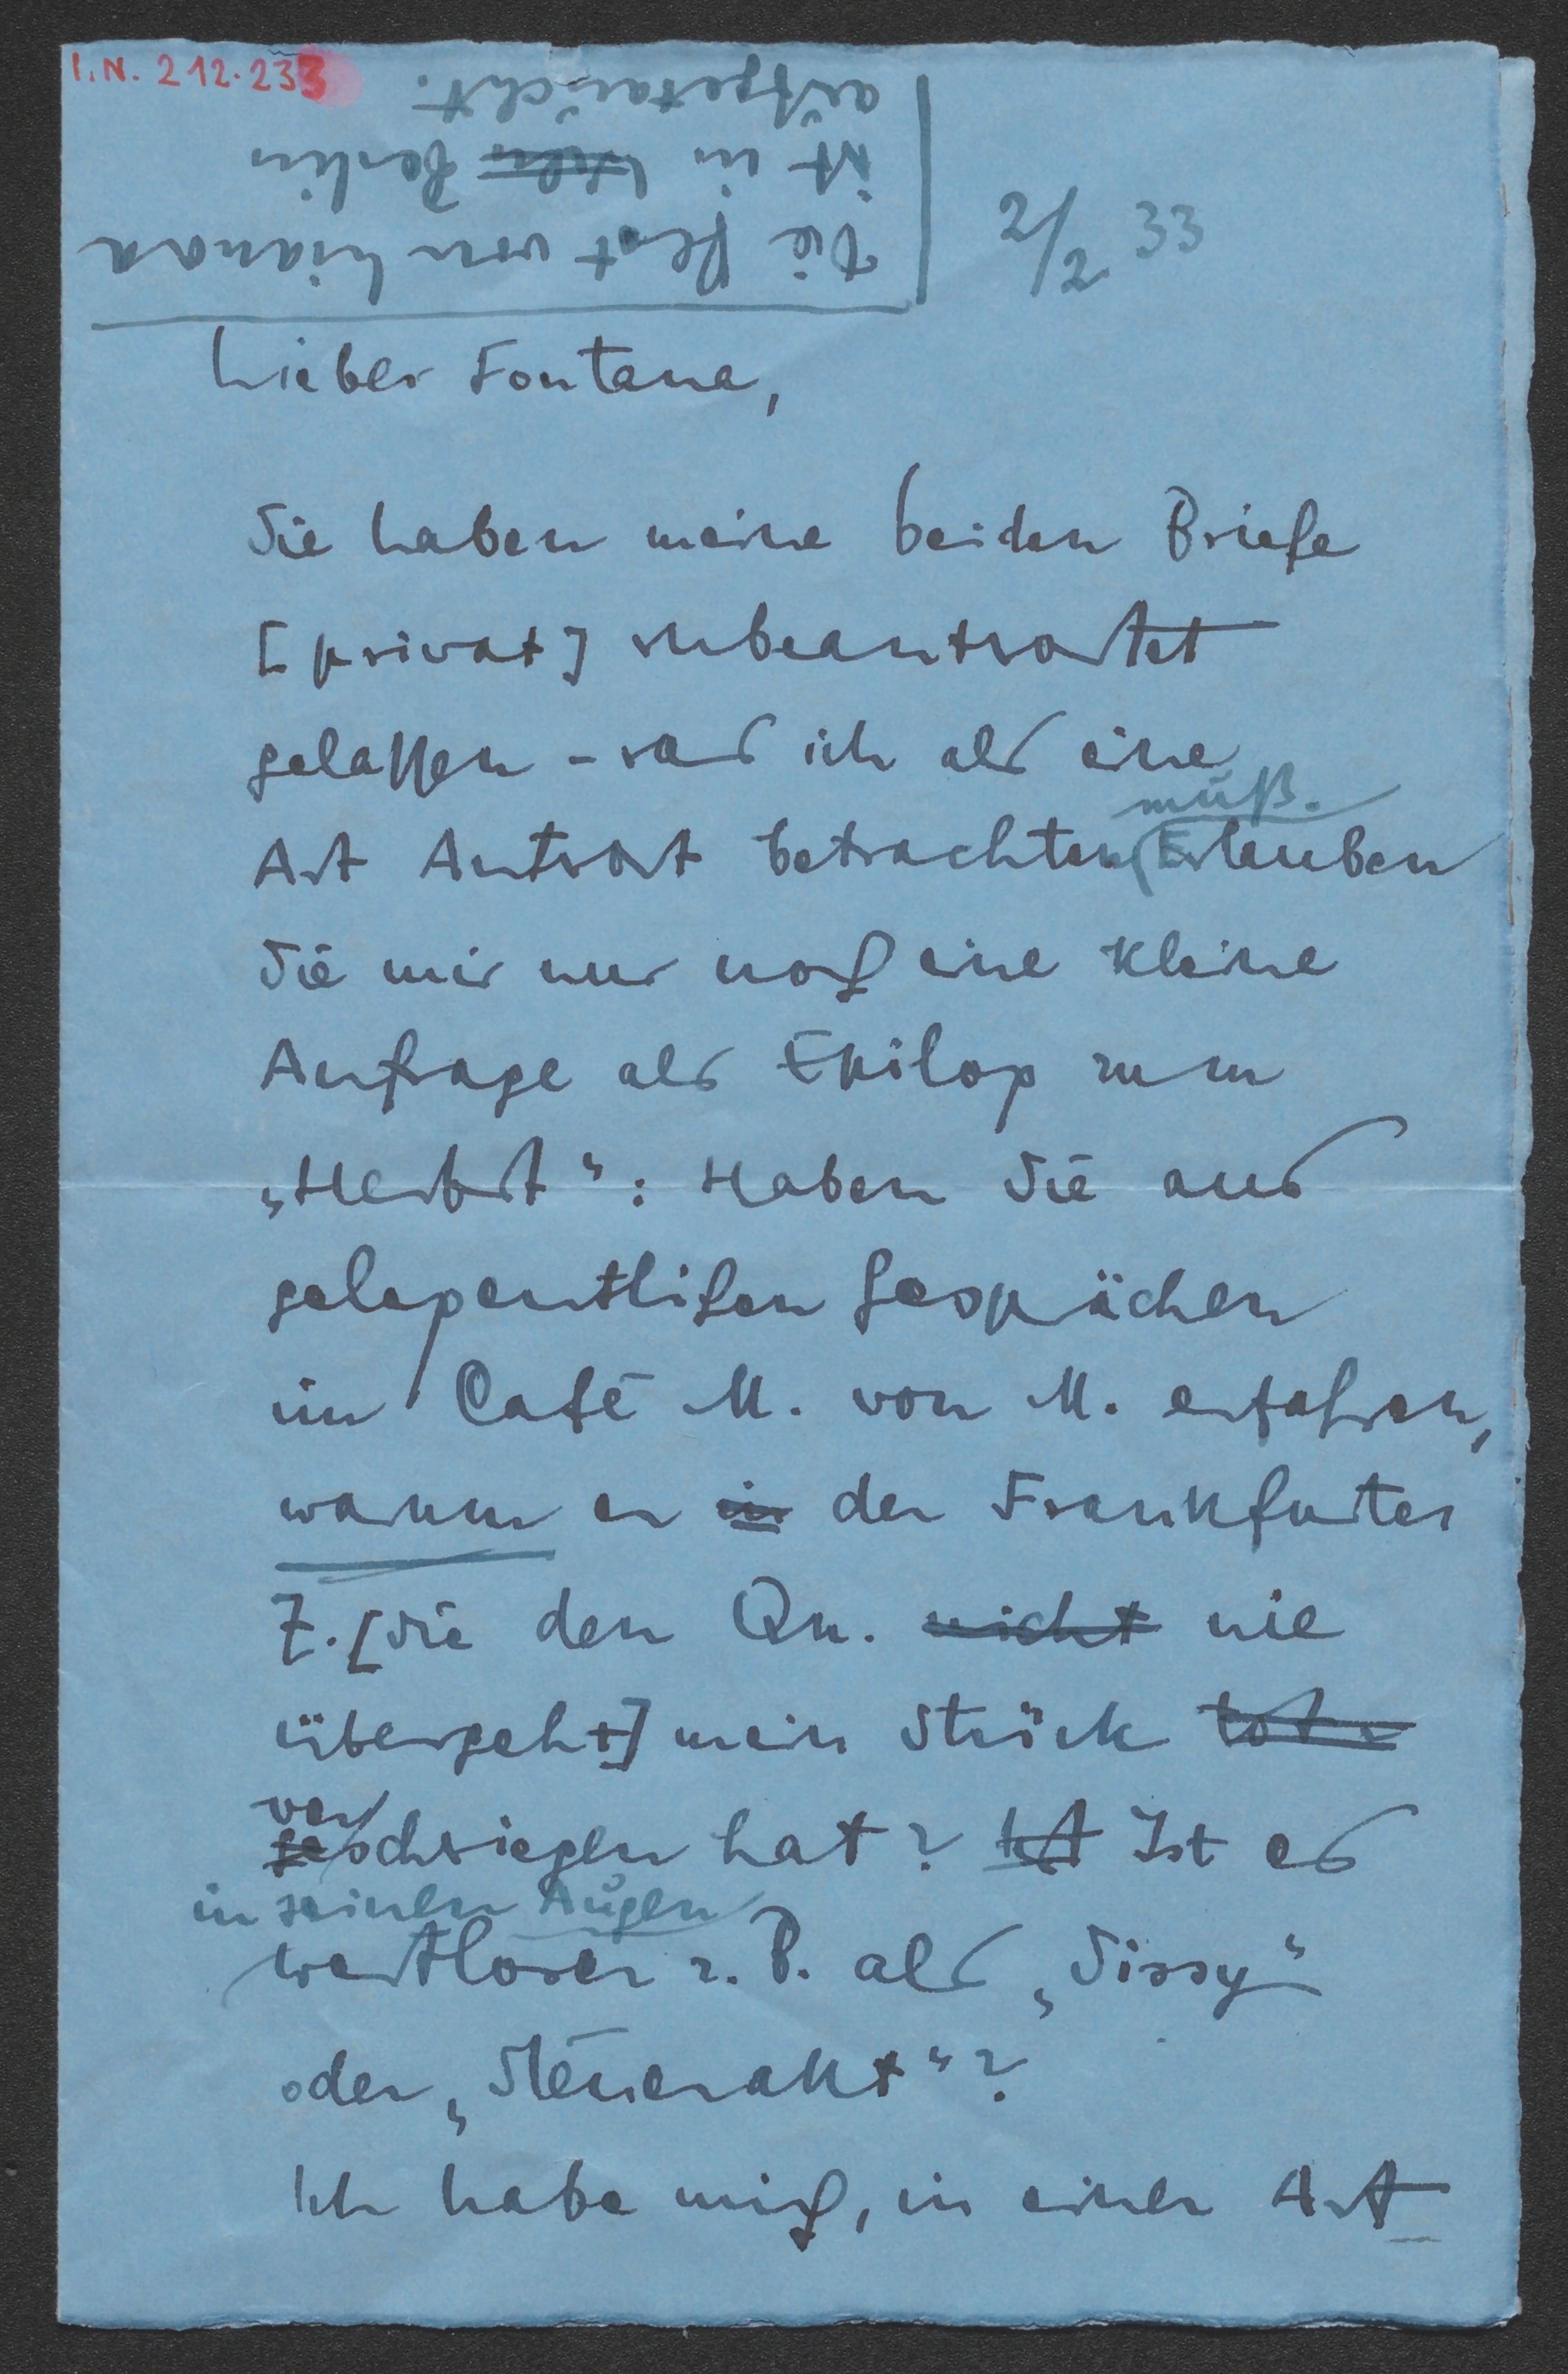 I.N. 212.233
Die Pest von Lianora
ist in Berlin
aufgetaucht.
2/2 33
Lieber Fontana,
Sie haben meine beiden Briefe
[privat] unbeantwortet
gelassen - was ich als eine
muß.
Art Antwort betrachten Erlauben
Sie mir nur noch eine kleine
Anfrage als Epilog zum
„Herbst“: Haben Sie aus
gelegentlichen Gesprächen
im Café M. von M. erfahren,
warum er in der Frankfurter
Z. [die den Qu. nicht nie
übergeht] mein Stück tot
ver
geschwiegen hat? Ist Ist es
in seinen Augen
wertloser z. B. als „Sissy“
oder „Steuerakt“?
Ich habe mich, in einer Art